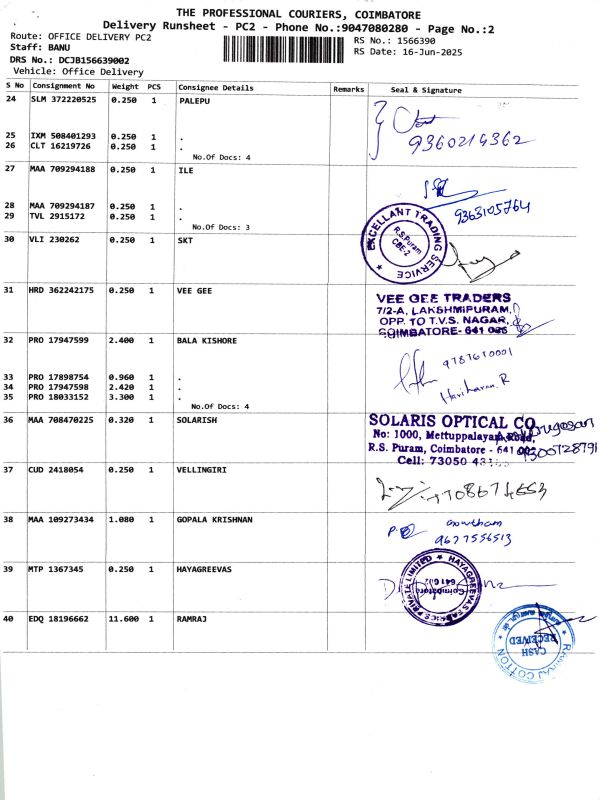 THE PROFESSIONAL COURIERS, COIMBATORE
Delivery Runsheet - PC2 - Phone No.:9047080280 - Page No.:2
Route: OFFICE DELIVERY PC2
RS No.: 1566390
Staff: BANU
RS Date: 16-Jun-2025
DRS No.: DCJB156639002
Vehicle: Office Delivery
S No Consignment No Weight PCS Consignee Details Remarks Seal & Signature
24 SLM 372220525 0.250 1 PALEPU
25 IXM 508401293 0.250 1 .
26 CLT 16219726 0.250 1 .
9360214362
No.Of Docs: 4
27 MAA 709294188 0.250 1 ILE
28 MAA 709294187 0.250 1 .
29 TVL 2915172 0.250 1 .
9363105764
No.Of Docs: 3
30 VLI 230262 0.250 1 SKT
EXCELLANT TRADING SERVICE
R.S.Puram
CBE-2
31 HRD 362242175 0.250 1 VEE GEE
VEE GEE TRADERS
7/2-A, LAKSHMIPURAM,
OPP. TO T.V.S. NAGAR,
COIMBATORE- 641 025
32 PRO 17947599 2.400 1 BALA KISHORE
9787610001
33 PRO 17898754 0.960 1 .
34 PRO 17947598 2.420 1 .
35 PRO 18033152 3.300 1 .
Hariharan. R
No.Of Docs: 4
36 MAA 708470225 0.320 1 SOLARISH
SOLARIS OPTICAL CO.
No: 1000, Mettuppalayam Road,
R.S. Puram, Coimbatore - 641 002
Cell: 73050
37 CUD 2418054 0.250 1 VELLINGIRI
9708674653
38 MAA 109273434 1.080 1 GOPALA KRISHNAN
Gowtham
9677556513
39 MTP 1367345 0.250 1 HAYAGREEVAS
HAYAGREEVAS FABRICS PRIVATE LIMITED
Coimbatore
40 EDQ 18196662 11.600 1 RAMRAJ
RAMRAJ COTTON
CASH
RECEIVED